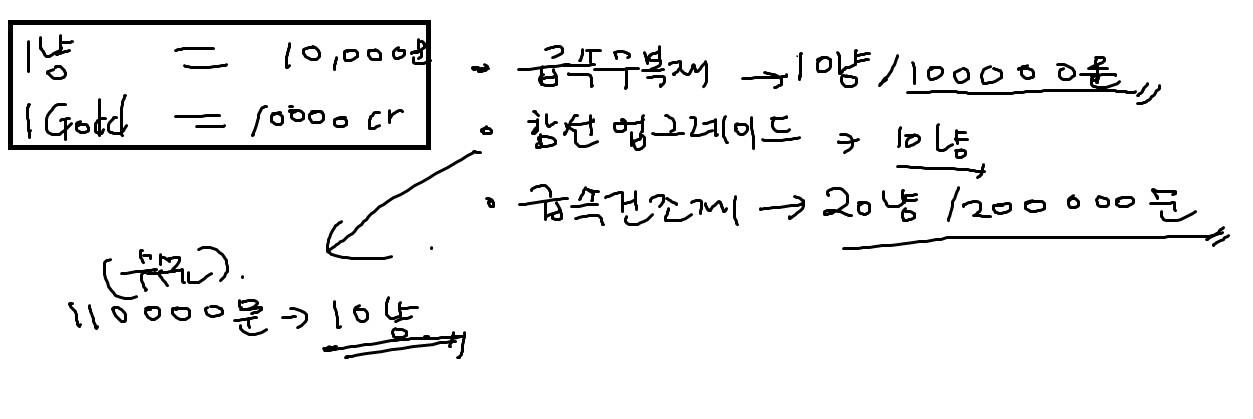 1냥 = 10,000문
1Gold = 10000 cr
• 급속수복재 → 10냥 / 100000문
• 함선 업그레이드 → 10냥
• 급속건조재 → 20냥 / 200000문
110000문 → 10냥